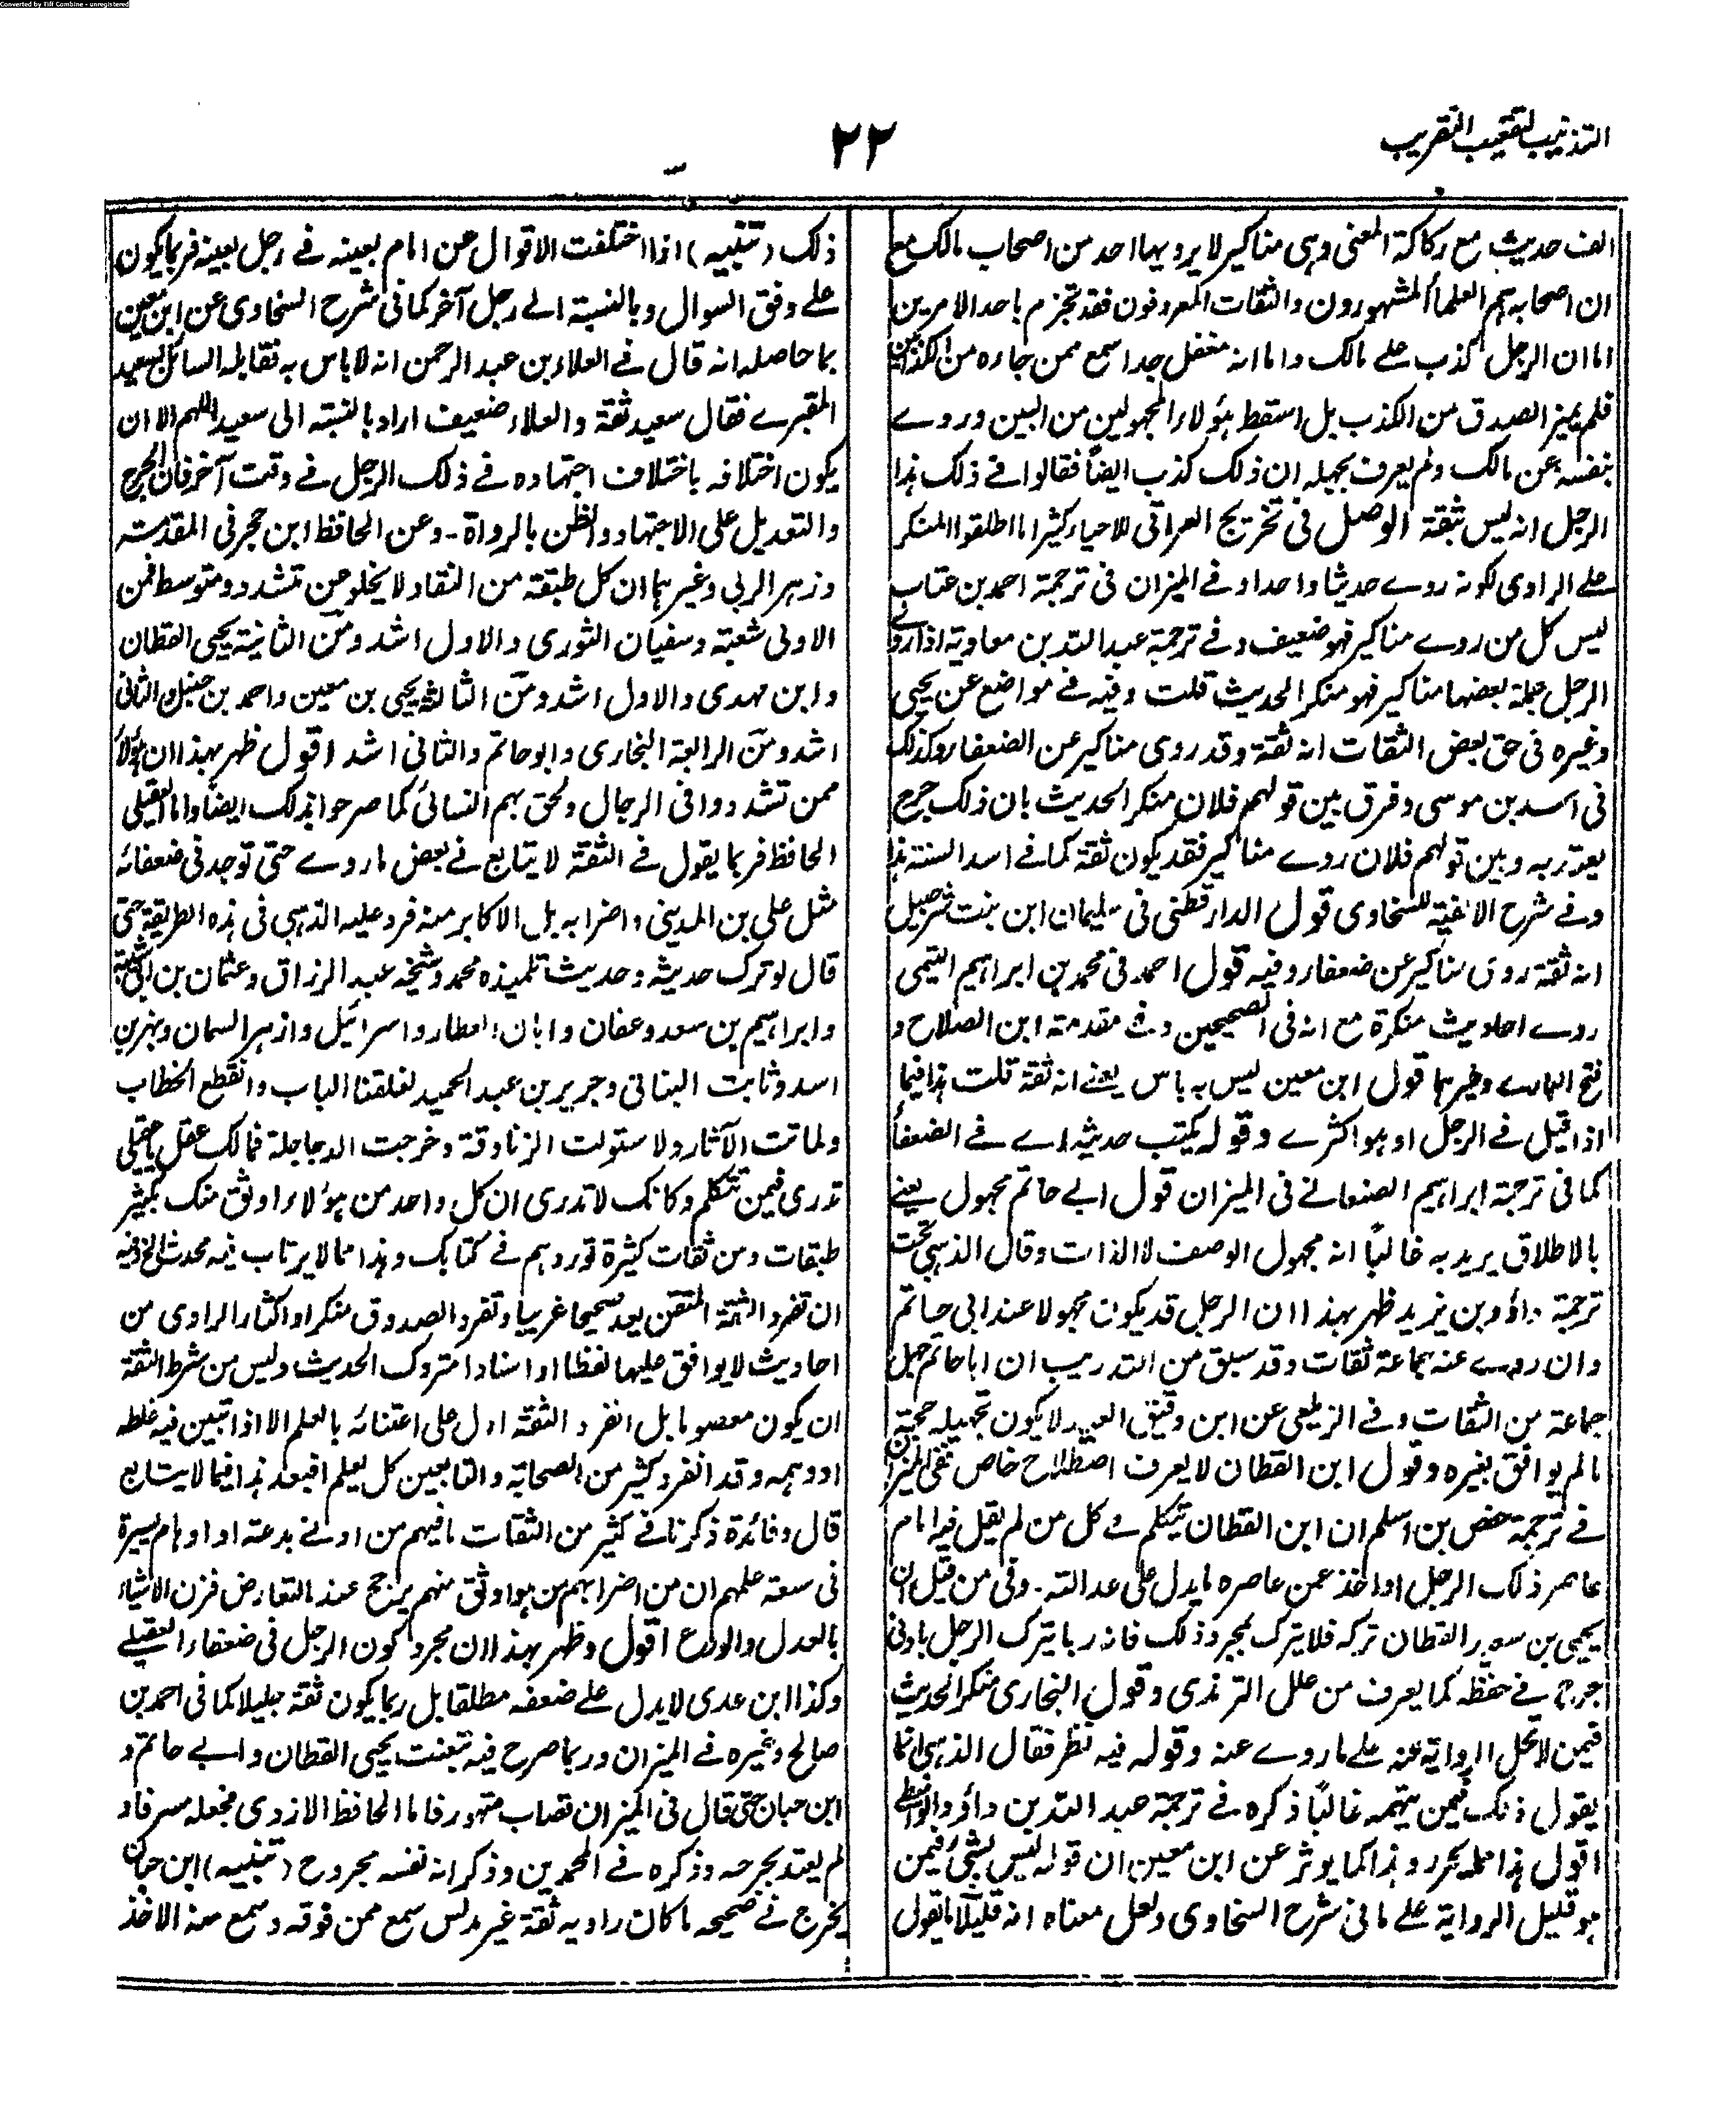 Converted by Tiff Combine - unregistered
التذنيب لتعقيب التقريب
٢٢
الف حديث مع ركاكة المعنى وهى مناكير لا يرويها احد من اصحاب مالك مع
ان اصحابه هم العلماء المشهورون والثقات المعروفون فقد تجزم باحد الامرين
اما ان الرجل كذب على مالك واما انه مغفل جدا سمع ممن جاءه من الكذابين
فلم يميز الصدق من الكذب بل اسقط هؤلاء المجهولين من البين وروے
بنفسه عن مالك ولم يعرف بجهله ان ذلك كذب ايضاً فقالوا فے ذلك هذا
الرجل انه ليس بثقة الوصل فى تخريج العراقى للاحياء كثيرا ما اطلقوا المنكر
على الراوى لكونه روے حديثا واحدا وفے الميزان فى ترجمة احمد بن عتاب
ليس كل من روے مناكير فهو ضعيف وفے ترجمة عبد الله بن معاوية اذا روى
الرجل جملة بعضها مناكير فهو منكر الحديث قلت وفيه فے مواضع عن يحيى
وغيره فى حق بعض الثقات انه ثقة وقد روى مناكير عن الضعفاء وكذلك
فى اسد بن موسى وفرق بين قولهم فلان منكر الحديث بان ذلك جرح
يعتد به وبين قولهم فلان روے مناكير فقد يكون ثقة كما فے اسد السنة هذا
وفے شرح الالفية للسخاوى قول الدارقطنى فى سليمان ابن بنت شرحبيل
انه ثقة روى مناكير عن ضعفاء وفيه قول احمد فى محمد بن ابراهيم التيمى
روے احاديث منكرة مع انه فى الصحيحين وفے مقدمة ابن الصلاح و
فتح البارے وغيرهما قول ابن معين ليس به باس يعنے انه ثقة قلت هذا فيما
اذا قيل فے الرجل او هو اكثرے وقوله يكتب حديثه اے فے الضعفاء
كما فى ترجمة ابراهيم الصنعانے فى الميزان قول ابے حاتم مجهول يعنے
بالاطلاق يريد به غالباً انه مجهول الوصف لا الذات وقال الذهبى تحت
ترجمة داؤد بن يزيد ظهر بهذا ان الرجل قد يكون مجهولا عند ابى حاتم
وان روے عنه جماعة ثقات وقد سبق من التدريب ان ابا حاتم جهل
جماعة من الثقات وفے الزيلعى عن ابن دقيق العيد لا يكون تجهيله حجة
مالم يوافق بغيره وقول ابن القطان لا يعرف اصطلاح خاص ففى الميزان
فے ترجمة حفص بن اسلم ان ابن القطان يتكلم فے كل من لم يقل فيه امام
عاصر ذلك الرجل او اخذ عمن عاصره ما يدل على عدالته - وفى من قيل ان
يحيى بن سعيد القطان تركه فلا يترك بمجرد ذلك فانه ربما يترك الرجل بادنى
جرح فے حفظه كما يعرف من علل الترمذى وقول البخارى منكر الحديث
فيمن لا تحل الرواية عنه على ما روے عنه وقوله فيه نظر فقال الذهبى انما
يقول ذلك فيمن يتهمه غالباً ذكره فے ترجمة عبد الله بن داؤد الواسطى
اقول هذا كله يحرر وهذا كما يوثر عن ابن معين ان قوله ليس بشئ فيمن
هو قليل الرواية على ما فى شرح السخاوى ولعل معناه انه قليلاً ما يقول
ذلك (تنبيه) اذا اختلفت الاقوال عن امام بعينه فے رجل بعينه فربما يكون
على وفق السوال وبالنسبة الے رجل آخر كما فى شرح السخاوى عن ابن معين
بما حاصله انه قال فے العلاء بن عبد الرحمن انه لا باس به فقابله السائل بسعيد
المقبرے فقال سعيد ثقة والعلاء ضعيف اراد بالنسبة الى سعيد اللهم الا ان
يكون اختلافه باختلاف اجتهاده فے ذلك الرجل فے وقت آخر فان الجرح
والتعديل على الاجتهاد والظن بالرواة - وعن الحافظ ابن حجر فى المقدمة
وزهر الربى وغيرهما ان كل طبقة من النقاد لا يخلو عن تشدد ومتوسط فمن
الاولى شعبة وسفيان الثورى والاول اشد ومن الثانية يحيى القطان
وابن مهدى والاول اشد ومن الثالثة يحيى بن معين واحمد بن حنبل والثانى
اشد ومن الرابعة البخارى وابو حاتم والثانى اشد اقول ظهر بهذا ان هؤلاء
ممن تشددوا فى الرجال ولحق بهم النسائى كما صرحوا بذلك ايضا واما العقيلى
الحافظ فربما يقول فے الثقة لا يتابع فے بعض ما روے حتى توجد فى ضعفائه
مثل على بن المدينى واضرابه بل الاكابر منه فرد عليه الذهبى فى هذه الطريقة حتى
قال لو ترك حديثه وحديث تلميذه محمد وشيخه عبد الرزاق وعثمان بن ابى شيبة
وابراهيم بن سعد وعفان وابان العطار واسرائيل وازهر السمان وبهز بن
اسد وثابت البنانى وجرير بن عبد الحميد لغلقنا الباب وانقطع الخطاب
ولماتت الآثار ولا ستولت الزنادقة وخرجت الدجاجلة فمالك عقل يا عقيلى
تدرى فيمن تتكلم وكانك لا تدرى ان كل واحد من هؤلاء اوثق منك بكثير
طبقات ومن ثقات كثيرة لم توردهم فے كتابك وهذا مما لا يرتاب فيه محدث الخ وفيه
ان تفرد الثقة المتقن يعد صحيحا غريبا وتفرد الصدوق منكرا واكثار الراوى من
احاديث لا يوافق عليها لفظا او اسنادا متروك الحديث وليس من شرط الثقة
ان يكون معصوما بل انفرد الثقة ادل على اعتنائه بالعلم الا اذا تبين فيه غلطه
او وهمه وقد انفرد كثير من الصحابة والتابعين كل بعلم افيعد هذا فيما لا يتابع
قال وفائدة ذكرنا فے كثير من الثقات ما فيهم من ادنے بدعة او اوهام يسيرة
فى سعة علمهم ان من اضرابهم من هو اوثق منهم يرجح عند التعارض فزن الاشياء
بالعدل والورع اقول وظهر بهذا ان مجرد كون الرجل فى ضعفاء العقيلے
وكذا ابن عدى لا يدل على ضعفه مطلقا بل ربما يكون ثقة جليلا كما فى احمد بن
صالح وغيره فے الميزان وربما صرح فيه بتعنت يحيى القطان وابے حاتم و
ابن حبان حتى قال فى الميزان قصاب متهور فاما الحافظ الازدى فجعله مسرفا و
لم يعتد بجرحه وذكره فے المحمدين وذكر انه نفسه مجروح (تنبيه) ابن حبان
يخرج فے صحيحه ما كان راويه ثقة غير مدلس سمع ممن فوقه وسمع منه الاخذ